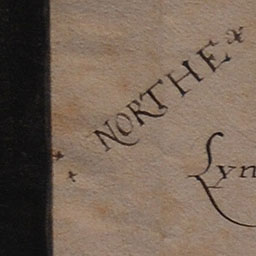 NORTHE
Lyn